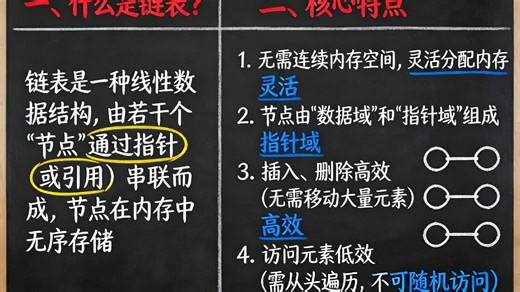 一、什么是链表？
链表是一种线性数
据结构，由若干个
“节点”通过指针
或引用）串联而
成，节点在内存中
无序存储
二、核心特点
1. 无需连续内存空间，灵活分配内存
灵活
2. 节点由“数据域”和“指针域”组成
指针域
3. 插入、删除高效
(无需移动大量元素)
高效
4. 访问元素低效
(需从头遍历，不可随机访问)